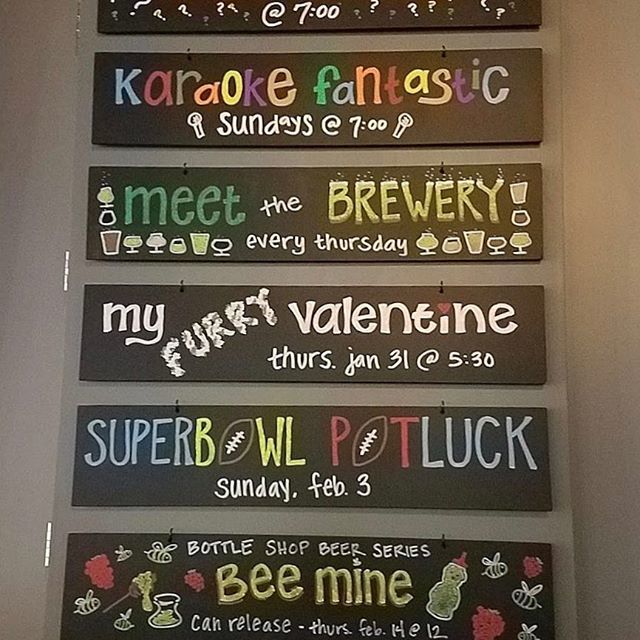 @ 7:00
karaoke fantastic
Sundays @ 7:00
meet the BREWERY
every thursday
my FURRY valentine
thurs. jan 31 @ 5:30
SUPERBOWL POTLUCK
sunday, feb. 3
BOTTLE SHOP BEER SERIES
Bee mine
Can release - thurs. feb. 14 @ 12